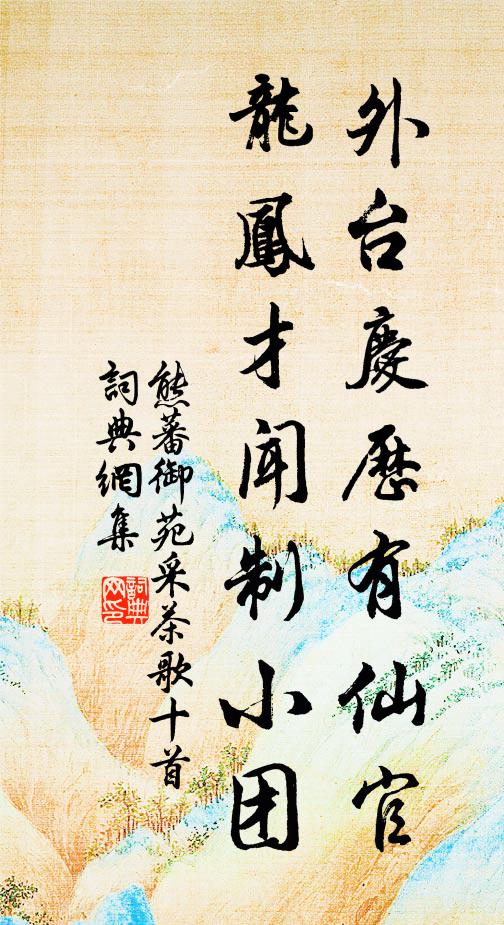 外台慶歷有仙官
龍鳳才聞制小团
熊蕃御苑采茶歌十首
詞典網集
詞典
网印